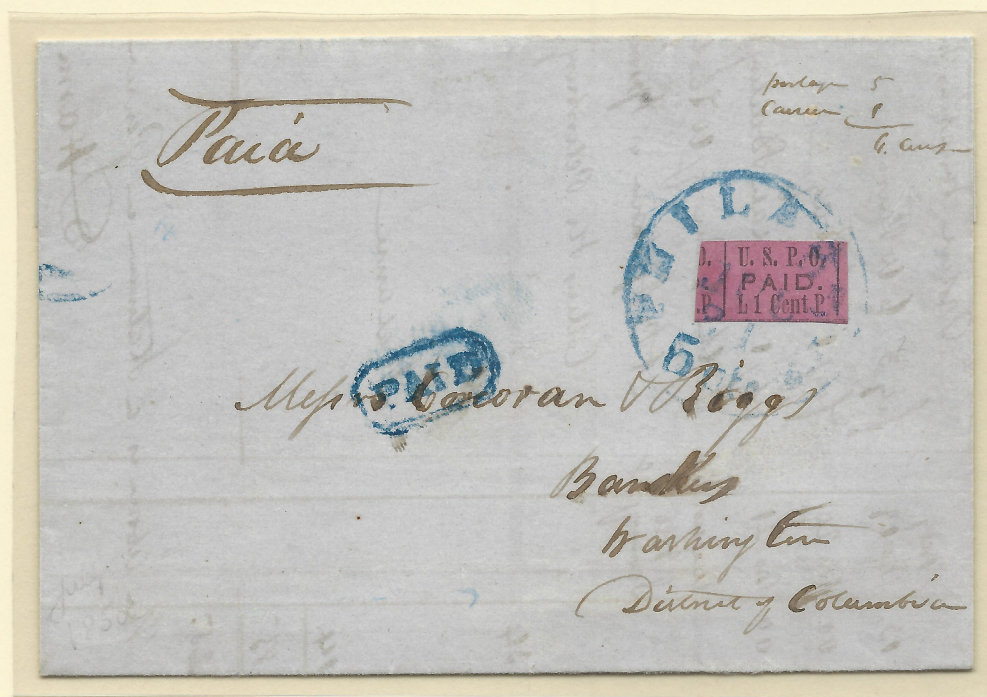 Paid
postage 5
Carrier 1
6. cents
PHILA
U. S. P. O.
PAID.
L 1 Cent. P.
5
PAID
Messrs Corcoran & Riggs
Bankers
Washington
District of Columbia
July
1850